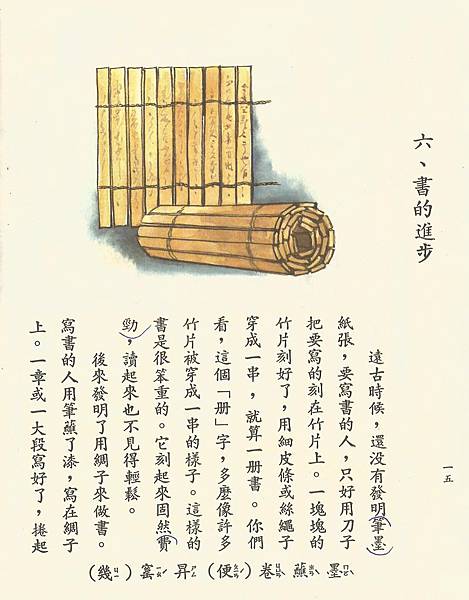 六、書的進步
一五
遠古時候，還没有發明筆墨
紙張，要寫書的人，只好用刀子
把要寫的刻在竹片上。一塊塊的
竹片刻好了，用細皮條或絲繩子
穿成一串，就算一册書。你們
看，這個「册」字，多麼像許多
竹片被穿成一串的樣子。這樣的
書是很笨重的。它刻起來固然費
勁，讀起來也不見得輕鬆。
後來發明了用綢子來做書。
寫書的人用筆蘸了漆，寫在綢子
上。一章或一大段寫好了，捲起
墨 蘸 卷（便）昇 窰（幾）